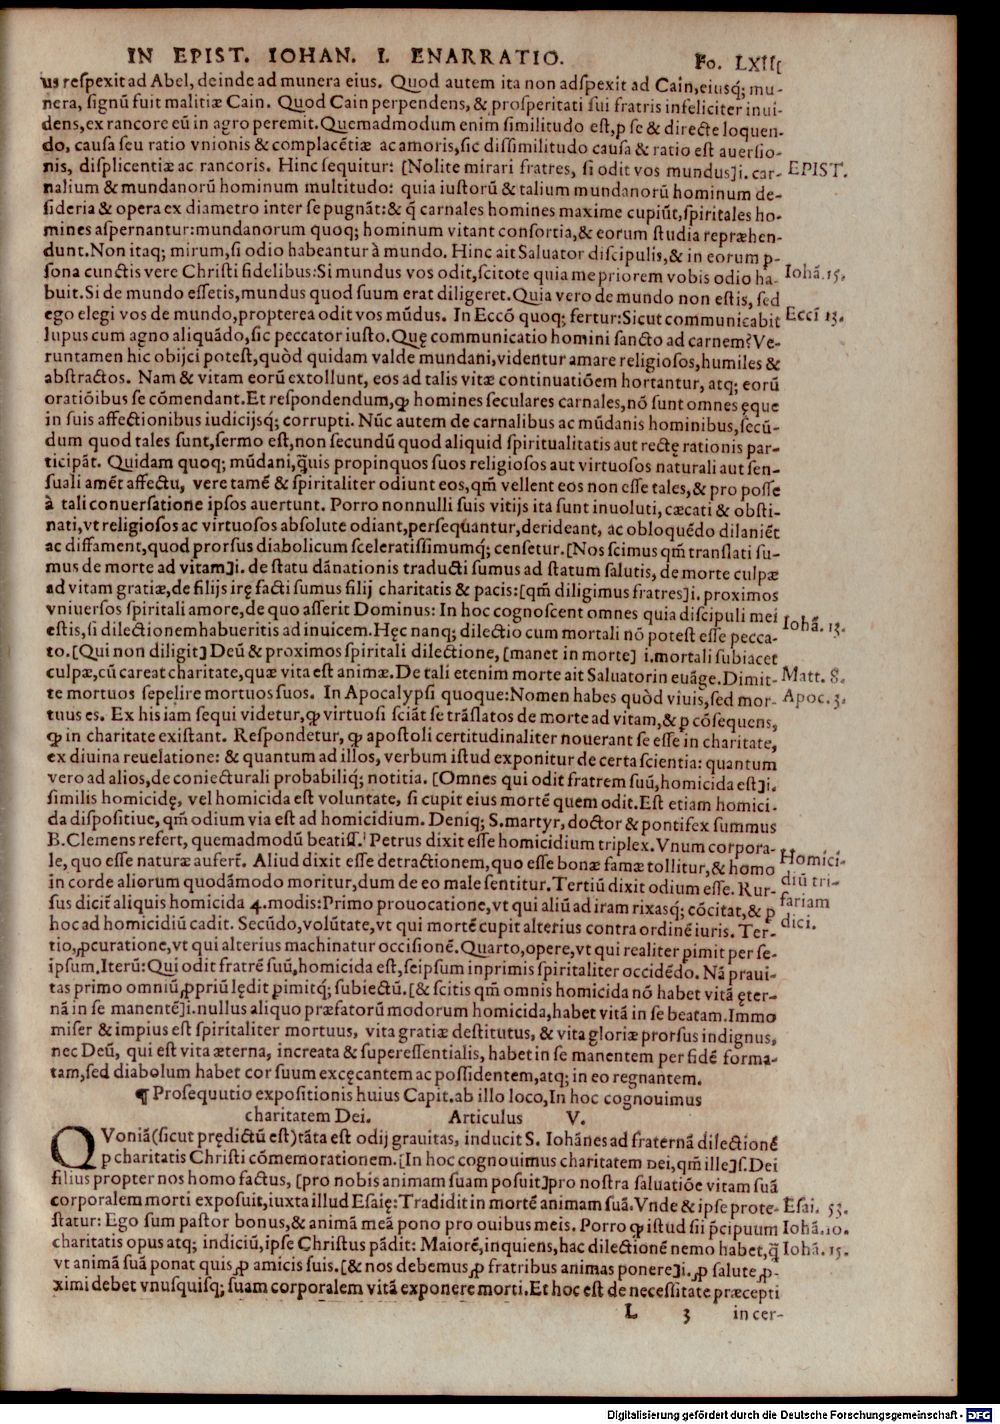 IN EPIST. IOHAN. I. ENARRATIO. Fo. LXII
us respexit ad Abel, deinde ad munera eius. Quod autem ita non adspexit ad Cain,eiusq; mu-
nera, signũ fuit malitiæ Cain. Quod Cain perpendens, & prosperitati sui fratris infeliciter inui-
dens,ex rancore eũ in agro peremit.Quemadmodum enim similitudo est,p se & directe loquen-
do, causa seu ratio vnionis & complacẽtiæ ac amoris,sic dissimilitudo causa & ratio est auersio-
nis, displicentiæ ac rancoris. Hinc sequitur: [Nolite mirari fratres, si odit vos mundus]i. car- EPIST.
nalium & mundanorũ hominum multitudo: quia iustorũ & talium mundanorũ hominum de-
sideria & opera ex diametro inter se pugnãt:& q̃ carnales homines maxime cupiũt,spiritales ho-
mines aspernantur:mundanorum quoq; hominum vitant consortia,& eorum studia repræhen-
dunt.Non itaq; mirum,si odio habeantur à mundo. Hinc ait Saluator discipulis,& in eorum p-
sona cunctis vere Christi fidelibus:Si mundus vos odit,scitote quia me priorem vobis odio ha- Iohã.15.
buit.Si de mundo essetis,mundus quod suum erat diligeret.Quia vero de mundo non estis, sed
ego elegi vos de mundo,propterea odit vos mũdus. In Eccõ quoq; fertur:Sicut communicabit Eccĩ 13.
lupus cum agno aliquãdo,sic peccator iusto.Quę communicatio homini sancto ad carnem?Ve-
runtamen hic obijci potest,quòd quidam valde mundani,videntur amare religiosos,humiles &
abstractos. Nam & vitam eorũ extollunt, eos ad talis vitæ continuatiõem hortantur, atq; eorũ
oratiõibus se cõmendant.Et respondendum,ꝙ homines seculares carnales,nõ sunt omnes ęque
in suis affectionibus iudicijsq; corrupti. Nũc autem de carnalibus ac mũdanis hominibus,secũ-
dum quod tales sunt,sermo est,non secundũ quod aliquid spiritualitatis aut rectę rationis par-
ticipãt. Quidam quoq; mũdani,q̃uis propinquos suos religiosos aut virtuosos naturali aut sen-
suali amẽt affectu, vere tamẽ & spiritaliter odiunt eos,qm̃ vellent eos non esse tales,& pro posse
à tali conuersatione ipsos auertunt. Porro nonnulli suis vitijs ita sunt inuoluti, cæcati & obsti-
nati,vt religiosos ac virtuosos absolute odiant,persequantur,derideant, ac obloquẽdo dilaniẽt
ac diffament,quod prorsus diabolicum sceleratissimumq; censetur.[Nos scimus qm̃ translati su-
mus de morte ad vitam]i. de statu dãnationis traducti sumus ad statum salutis, de morte culpæ
ad vitam gratiæ,de filijs irę facti sumus filij charitatis & pacis:[qm̃ diligimus fratres]i. proximos
vniuersos spiritali amore,de quo asserit Dominus: In hoc cognoscent omnes quia discipuli mei
estis,si dilectionemhabueritis ad inuicem.Hęc nanq; dilectio cum mortali nõ potest esse pecca- Iohã. 13.
to.[Qui non diligit] Deũ & proximos spiritali dilectione, [manet in morte] i.mortali subiacet
culpæ,cũ careat charitate,quæ vita est animæ.De tali etenim morte ait Saluator in euãge.Dimit- Matt. 8.
te mortuos sepelire mortuos suos. In Apocalypsi quoque:Nomen habes quòd viuis,sed mor- Apoc. 3.
tuus es. Ex his iam sequi videtur,ꝙ virtuosi sciãt se trãslatos de morte ad vitam,& ꝑ cõsequens,
ꝙ in charitate existant. Respondetur, ꝙ apostoli certitudinaliter nouerant se esse in charitate,
ex diuina reuelatione: & quantum ad illos, verbum istud exponitur de certa scientia: quantum
vero ad alios,de coniecturali probabiliq; notitia. [Omnes qui odit fratrem suũ,homicida est]i.
similis homicidę, vel homicida est voluntate, si cupit eius mortẽ quem odit.Est etiam homici-
da dispositiue, qm̃ odium via est ad homicidium. Deniq; S.martyr, doctor & pontifex summus
B.Clemens refert, quemadmodũ beatiss. Petrus dixit esse homicidium triplex.Vnum corpora-
le, quo esse naturæ aufert̃. Aliud dixit esse detractionem,quo esse bonæ famæ tollitur,& homo Homici-
in corde aliorum quodãmodo moritur,dum de eo male sentitur.Tertiũ dixit odium esse. Rur- diũ tri-
sus dicit̃ aliquis homicida 4.modis:Primo prouocatione,vt qui aliũ ad iram rixasq; cõcitat,& ꝑ fariam
hoc ad homicidiũ cadit. Secũdo,volũtate,vt qui mortẽ cupit alterius contra ordinẽ iuris. Ter- dici.
tio,ꝓcuratione,vt qui alterius machinatur occisionẽ.Quarto,opere,vt qui realiter pimit per se-
ipsum.Iterũ:Qui odit fratrẽ suũ,homicida est,seipsum inprimis spiritaliter occidẽdo. Nã praui-
tas primo omniũ,ꝓpriũ lędit pimitq; subiectũ.[& scitis qm̃ omnis homicida nõ habet vitã ęter-
nã in se manentẽ]i.nullus aliquo præfatorũ modorum homicida,habet vitã in se beatam.Immo
miser & impius est spiritaliter mortuus, vita gratiæ destitutus, & vita gloriæ prorsus indignus,
nec Deũ, qui est vita æterna, increata & superessentialis, habet in se manentem per fidẽ forma-
tam,sed diabolum habet cor suum excęcantem ac possidentem,atq; in eo regnantem.
¶ Prosequutio expositionis huius Capit.ab illo loco,In hoc cognouimus
charitatem Dei. Articulus V.
QVoniã(sicut prędictũ est)tãta est odij grauitas, inducit S. Iohãnes ad fraternã dilectionẽ
p charitatis Christi cõmemorationem.[In hoc cognouimus charitatem DEI,qm̃ ille]s.Dei
filius propter nos homo factus, [pro nobis animam suam posuit]pro nostra saluatiõe vitam suã
corporalem morti exposuit,iuxta illud Esaię:Tradidit in mortẽ animam suã.Vnde & ipse prote- Esai. 53.
statur: Ego sum pastor bonus,& animã meã pono pro ouibus meis. Porro ꝙ istud sit p̃cipuum Iohã.10.
charitatis opus atq; indiciũ,ipse Christus pãdit: Maiorẽ,inquiens,hac dilectionẽ nemo habet,q̃ Iohã. 15.
vt animã suã ponat quis ꝓ amicis suis.[& nos debemus ꝓ fratribus animas ponere]i.ꝓ salute ꝓ-
ximi debet vnusquisq; suam corporalem vitã exponere morti.Et hoc est de necessitate præcepti
L 3 in cer-
Digitalisierung gefördert durch die Deutsche Forschungsgemeinschaft - DFG